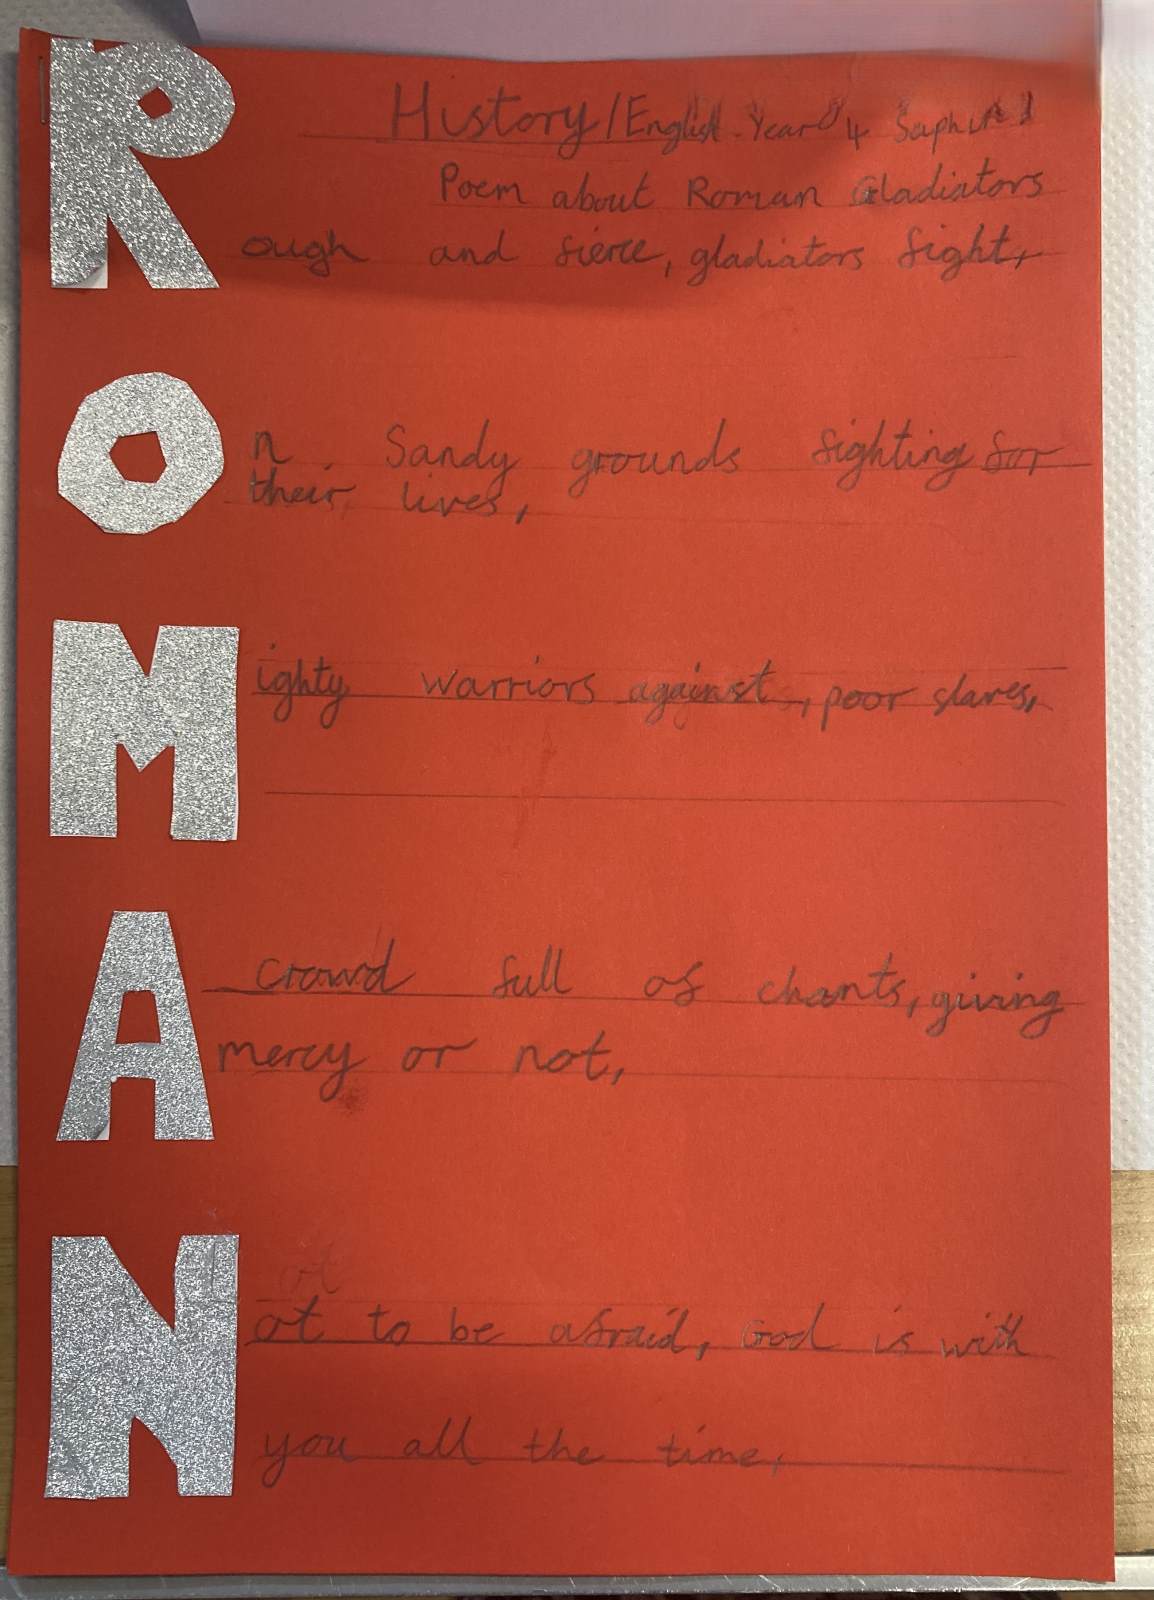 History/English Year 4 Saphire
Poem about Roman Gladiators
Rough and fierce, gladiators fight,
On Sandy grounds fighting for
their lives,
Mighty warriors against, poor slaves,
A crowd full of chants, giving
mercy or not,
Not to be afraid, God is with
you all the time,